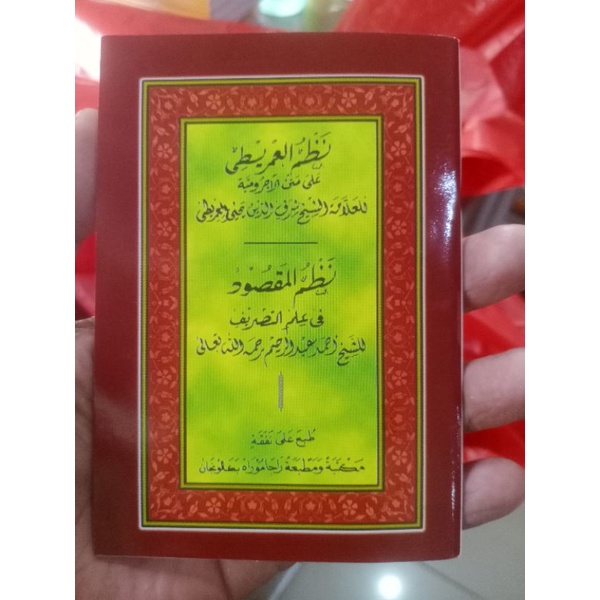 نَظْمُ العمريطي
على متن الآجرومية
للعلامة الشيخ شرف الدين يحيى العمريطي
نَظْمُ المقصُود
في علم التصريف
للشيخ أحمد عبد الرحيم رحمه الله تعالى
طبع على نفقة
مكتبة ومطبعة راجا موراه بكلونجان